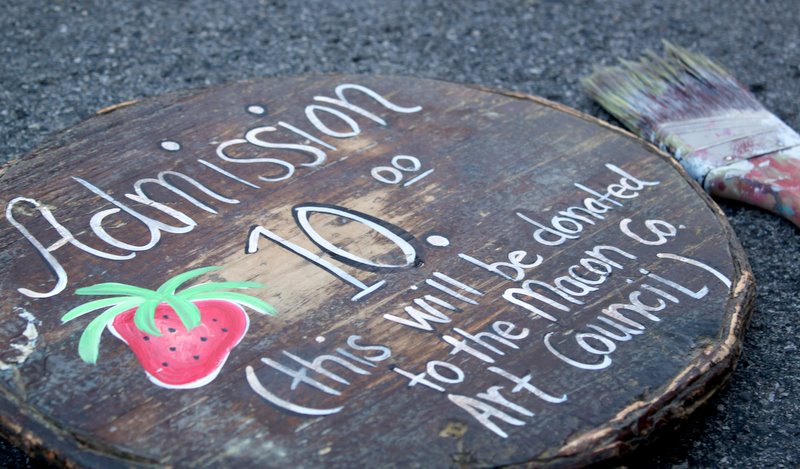 Admission
10.00
(this will be donated
to the Macon Co.
Art Council)